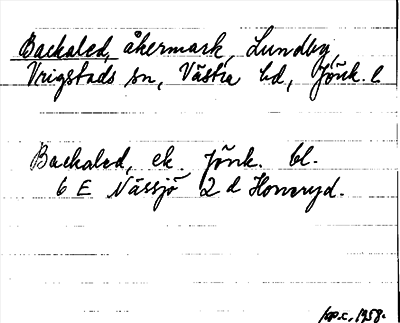 Backaled, åkermark, Lundby,
Vrigstads sn, Västra hd, Jönk. l
Backaled, ek. Jönk. bl.
6 E Nässjö 2 d Homsryd.
1958.